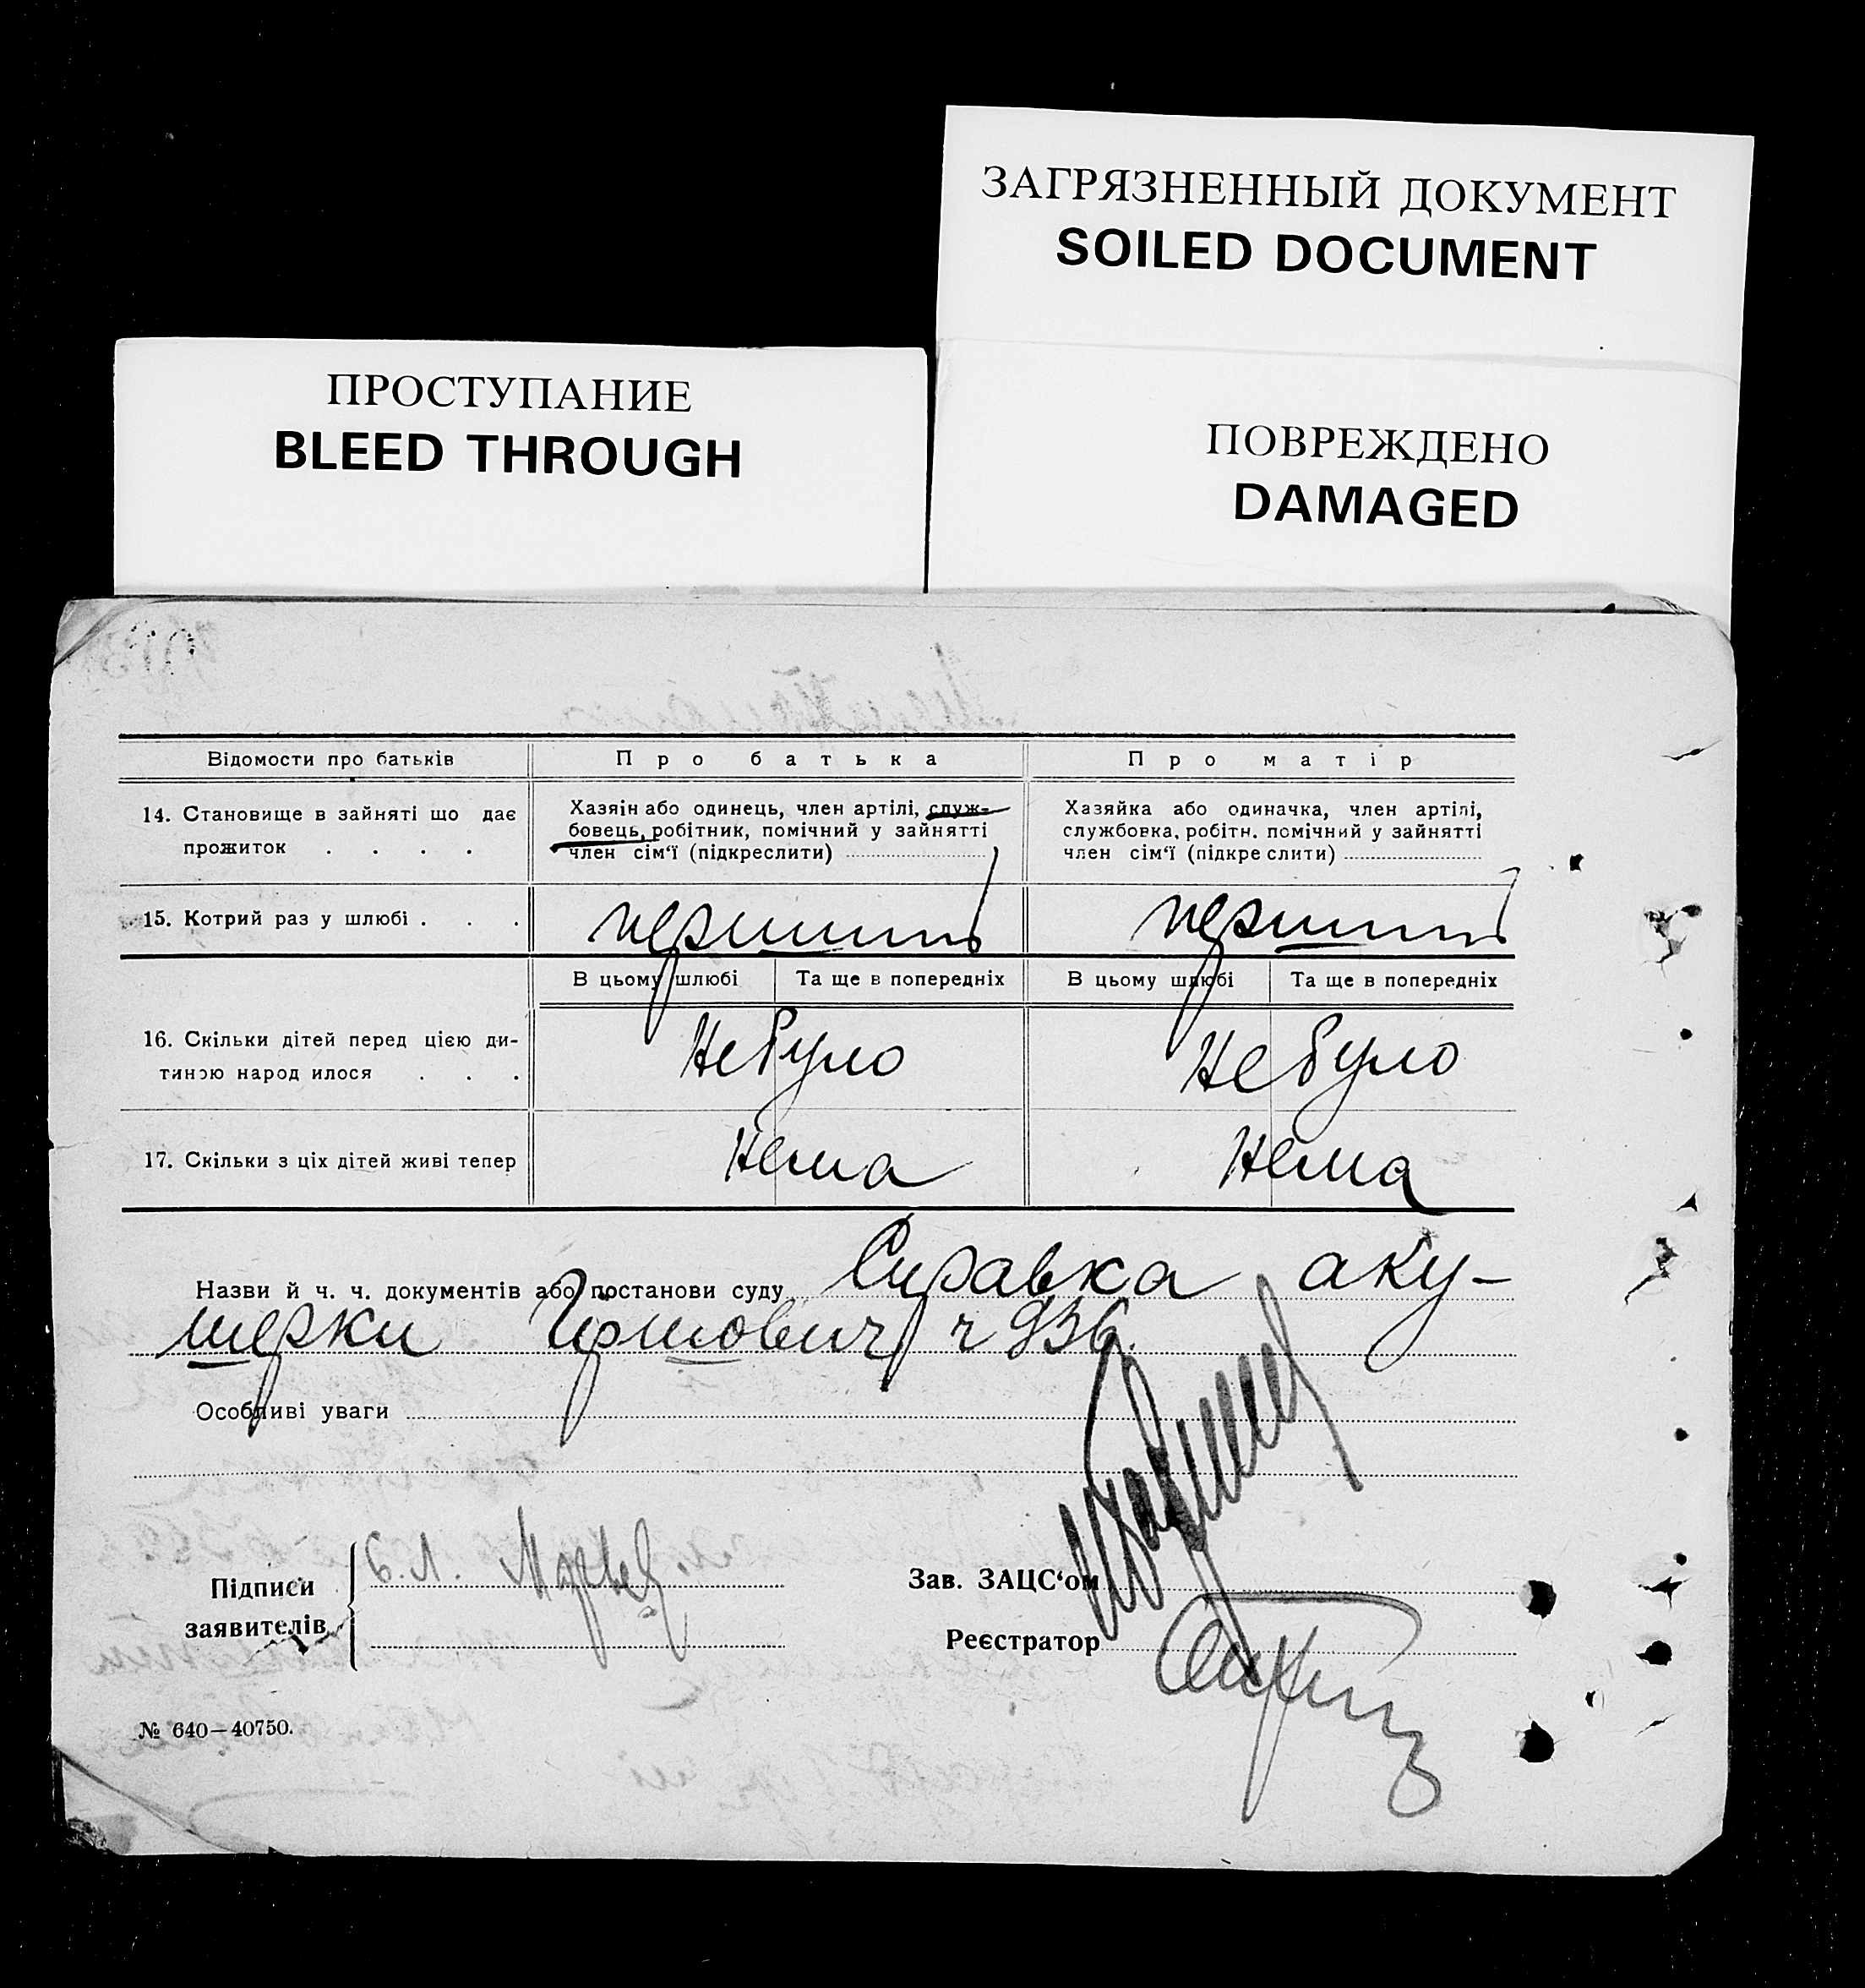 ЗАГРЯЗНЕННЫЙ ДОКУМЕНТ
SOILED DOCUMENT
ПРОСТУПАНИЕ
BLEED THROUGH
ПОВРЕЖДЕНО
DAMAGED
Відомости про батьків Про батька Про матір
14. Становище в зайняті що дає прожиток . . . .
Хазяін або одинець, член артілі, служ-
бовець, робітник, помічний у зайнятті
член сім‘ї (підкреслити)
Хазяйка або одиначка, член артілі,
службовка, робітн. помічний у зайнятті
член сім‘ї (підкреслити)
15. Котрий раз у шлюбі . . . перший перший
В цьому шлюбі Та ще в попередніх В цьому шлюбі Та ще в попередніх
16. Скільки дітей перед цією ди-
тиною народилося . . . Не було Не було
17. Скільки з ціх дітей живі тепер Нема Нема
Назви й ч. ч. документів або постанови суду Справка аку-
шерки ч 936.
Особливі уваги
Підписи
заявителів
Зав. ЗАЦС‘ом
Реєстратор
№ 640—40750.